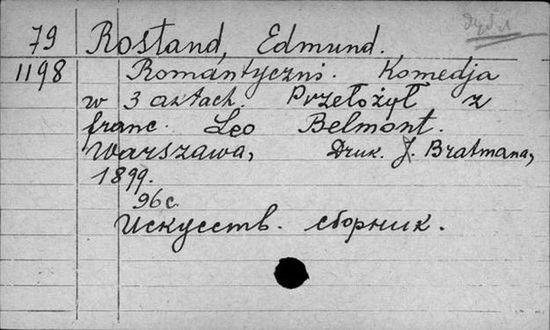 79 Rostand, Edmund.
1198 Romantyczni. Komedja
w 3 aktach. Przełożył z
franc. Leo Belmont.
Warszawa, Druk. J. Bratmana,
1899.
96 с.
Искусств. сборник.